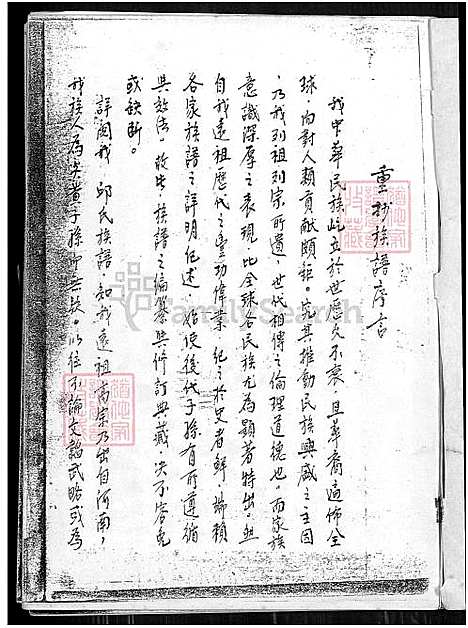 重抄族譜序言
我中華民族屹立於世歷久不衰,且華裔遍佈全
球,而對人類貢獻頗鉅。究其推動民族興盛之主因
,乃我列祖列宗所遺,世代相傳之倫理道德也,而家族
意識深厚之表現,比全球各民族尤為顯著特出。然
自我遠祖歷代之豐功偉業,紀之於史者鮮,端賴
各家族譜之詳明紀述,始使後代子孫有所遵循
與效法,故此,族譜之編纂與修訂典藏,決不容免
或缺斷。
詳閱我邱氏族譜,知我遠祖高宗乃出自河南,
我族人為炎黃子孫即無疑。以往不論文韜武略或為
FamilySearch